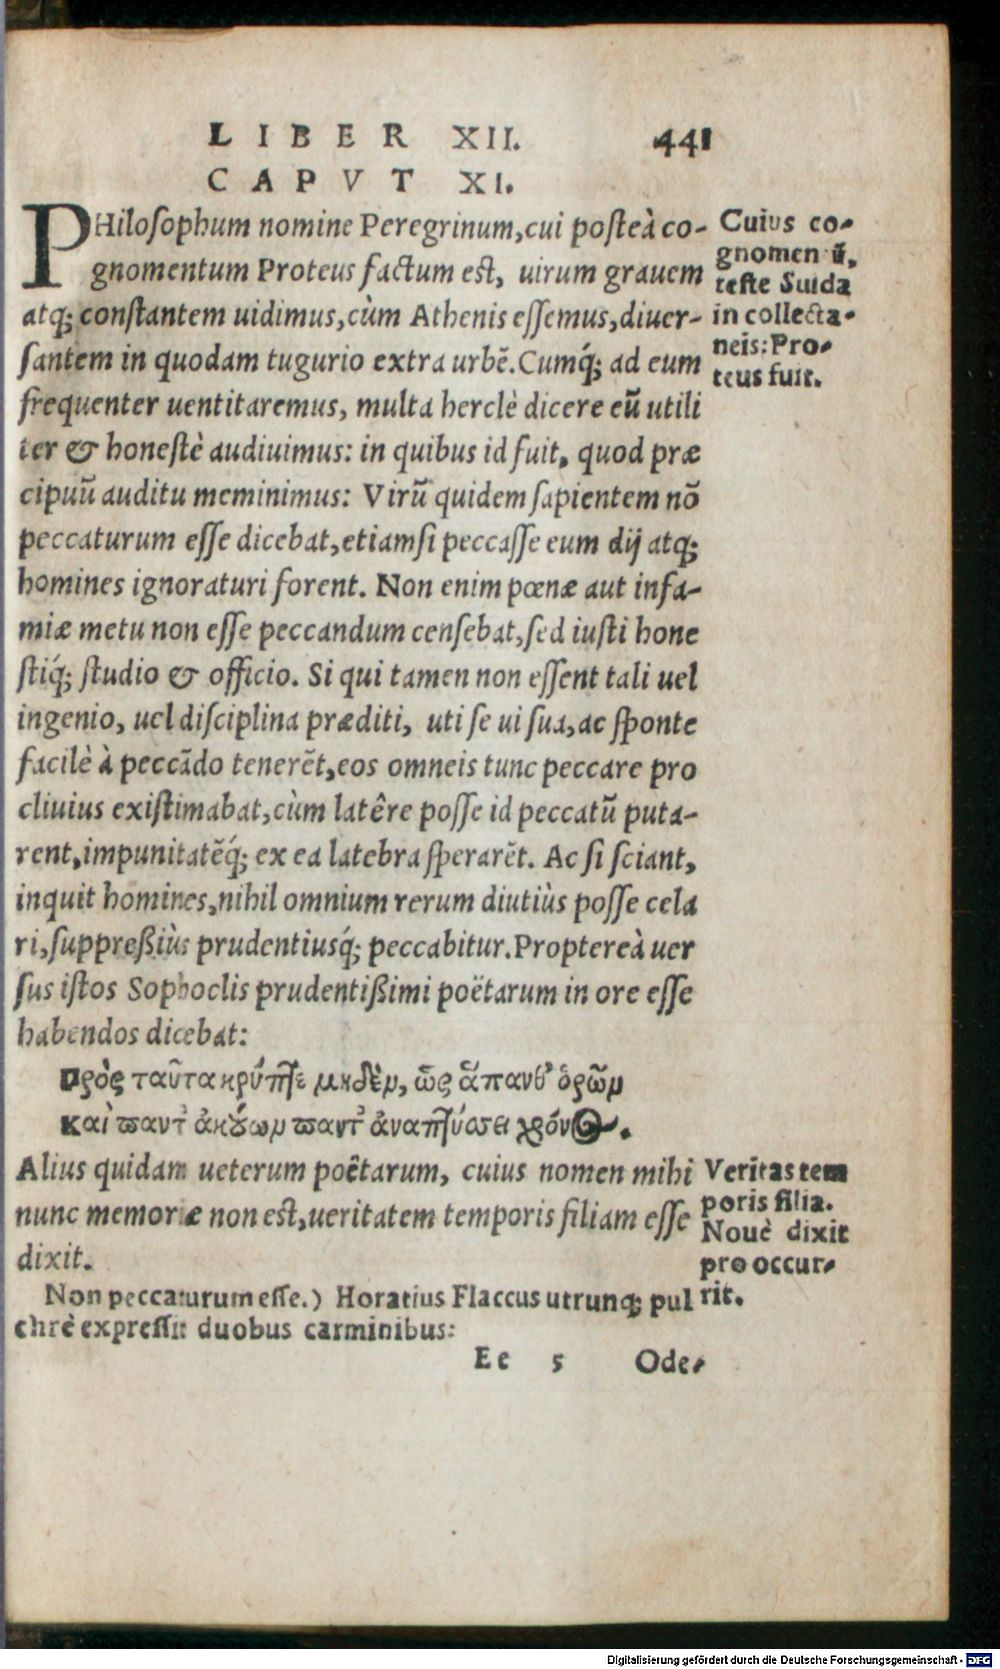 LIBER XII. 441
CAPVT XI.
PHilosophum nomine Peregrinum, cui posteà co-
gnomentum Proteus factum est, uirum grauem
atq; constantem uidimus, cùm Athenis essemus, diuer-
santem in quodam tugurio extra urbẽ. Cumq́; ad eum
frequenter uentitaremus, multa herclè dicere eũ utili
ter & honestè audiuimus: in quibus id fuit, quod præ
cipuũ auditu meminimus: Virũ quidem sapientem nõ
peccaturum esse dicebat, etiamsi peccasse eum dij atq;
homines ignoraturi forent. Non enim pœnæ aut infa-
miæ metu non esse peccandum censebat, sed iusti hone
stiq́; studio & officio. Si qui tamen non essent tali uel
ingenio, uel disciplina præditi, uti se ui sua, ac sponte
facilè à peccãdo tenerẽt, eos omneis tunc peccare pro
cliuius existimabat, cùm latêre posse id peccatũ puta-
rent, impunitatẽq́; ex ea latebra sperarẽt. Ac si sciant,
inquit homines, nihil omnium rerum diutiùs posse cela
ri, suppreßiùs prudentiusq́; peccabitur. Proptereà uer
sus istos Sophoclis prudentißimi poëtarum in ore esse
habendos dicebat:
Πρὸς ταῦτα κρύπτε μηδὲν, ὡς ἅπανθ' ὁρῶν
Καὶ παντ' ἀκούων παντ' ἀναπτύσσει χρόνος.
Alius quidam ueterum poëtarum, cuius nomen mihi
nunc memoriæ non est, ueritatem temporis filiam esse
dixit.
Non peccaturum esse.) Horatius Flaccus utrunq; pul
chrè expressit duobus carminibus:
Ee 5 Ode-
Cuius co-
gnomen ũ,
teste Suida
in collecta-
neis: Pro-
teus fuit.
Veritas tem
poris filia.
Nouè dixit
pro occur-
rit.
Digitalisierung gefördert durch die Deutsche Forschungsgemeinschaft - DFG